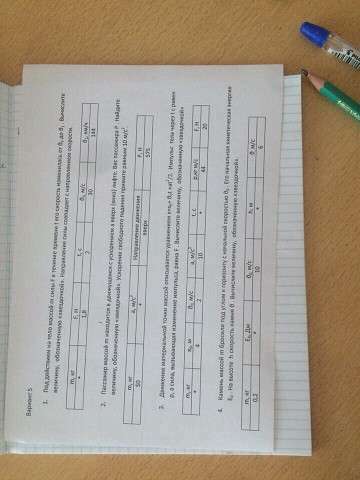 Вариант 5
1. Под действием на тело массой m силы F в течение времени t его скорость изменилась от υ₁ до υ₂. Вычислите
величину, обозначенную «звездочкой». Направление силы совпадает с направлением скорости.
m, кг F, Н t, с υ₁, м/с υ₂, км/ч
* 1,8 2 30 144
2. Пассажир массой m находится в движущемся с ускорением a вверх (вниз) лифте. Вес пассажира P. Найдите
величину, обозначенную «звездочкой». Ускорение свободного падения примите равным 10 м/с².
m, кг a, м/с² Направление движения P, Н
50 * вверх 575
3. Движение материальной точки массой описывается уравнением
p, а сила, вызывающая изменение импульса, равна F. Вычислите величину, обозначенную «звездочкой»
m, кг x₀, м υ₀, м/с a, м/с² t, с p, кг м/с F, Н
* 4 2 10 * 44 20
4. Камень массой m бросили под углом к горизонту с начальной скоростью υ₀. Его начальная кинетическая энергия
Eₖ. На высоте h скорость камня υ. Вычислите величину, обозначенную «звездочкой».
m, кг Eₖ, Дж υ₀, м/с h, м υ, м/с
0,2 * 10 * 6